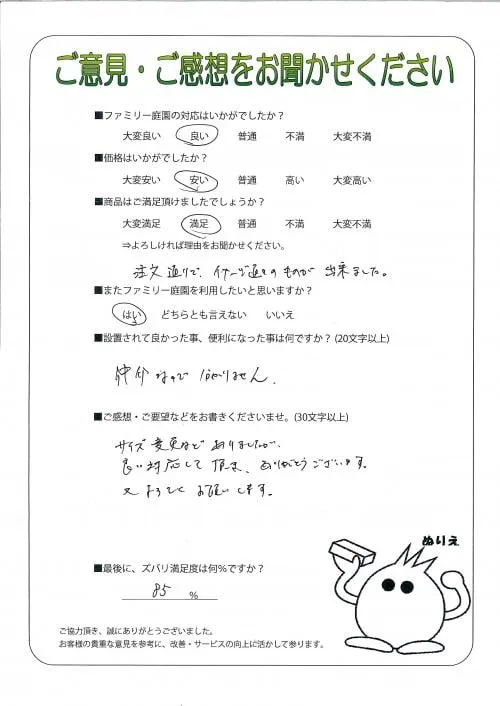 ご意見・ご感想をお聞かせください
■ファミリー庭園の対応はいかがでしたか？
大変良い 良い 普通 不満 大変不満
■価格はいかがでしたか？
大変安い 安い 普通 高い 大変高い
■商品はご満足頂けましたでしょうか？
大変満足 満足 普通 不満 大変不満
⇒よろしければ理由をお聞かせください。
注文通りで、イメージ通りのものが出来ました。
■またファミリー庭園を利用したいと思いますか？
はい どちらとも言えない いいえ
■設置されて良かった事、便利になった事は何ですか？(20文字以上)
仲介なので わかりません。
■ご感想・ご要望などをお書きくださいませ。(30文字以上)
サイズ変更など ありましたが、
良い対応して頂き、ありがとうございます。
又よろしくお願いします。
ぬりえ
■最後に、ズバリ満足度は何%ですか？
85 %
ご協力頂き、誠にありがとうございました。
お客様の貴重な意見を参考に、改善・サービスの向上に活かして参ります。